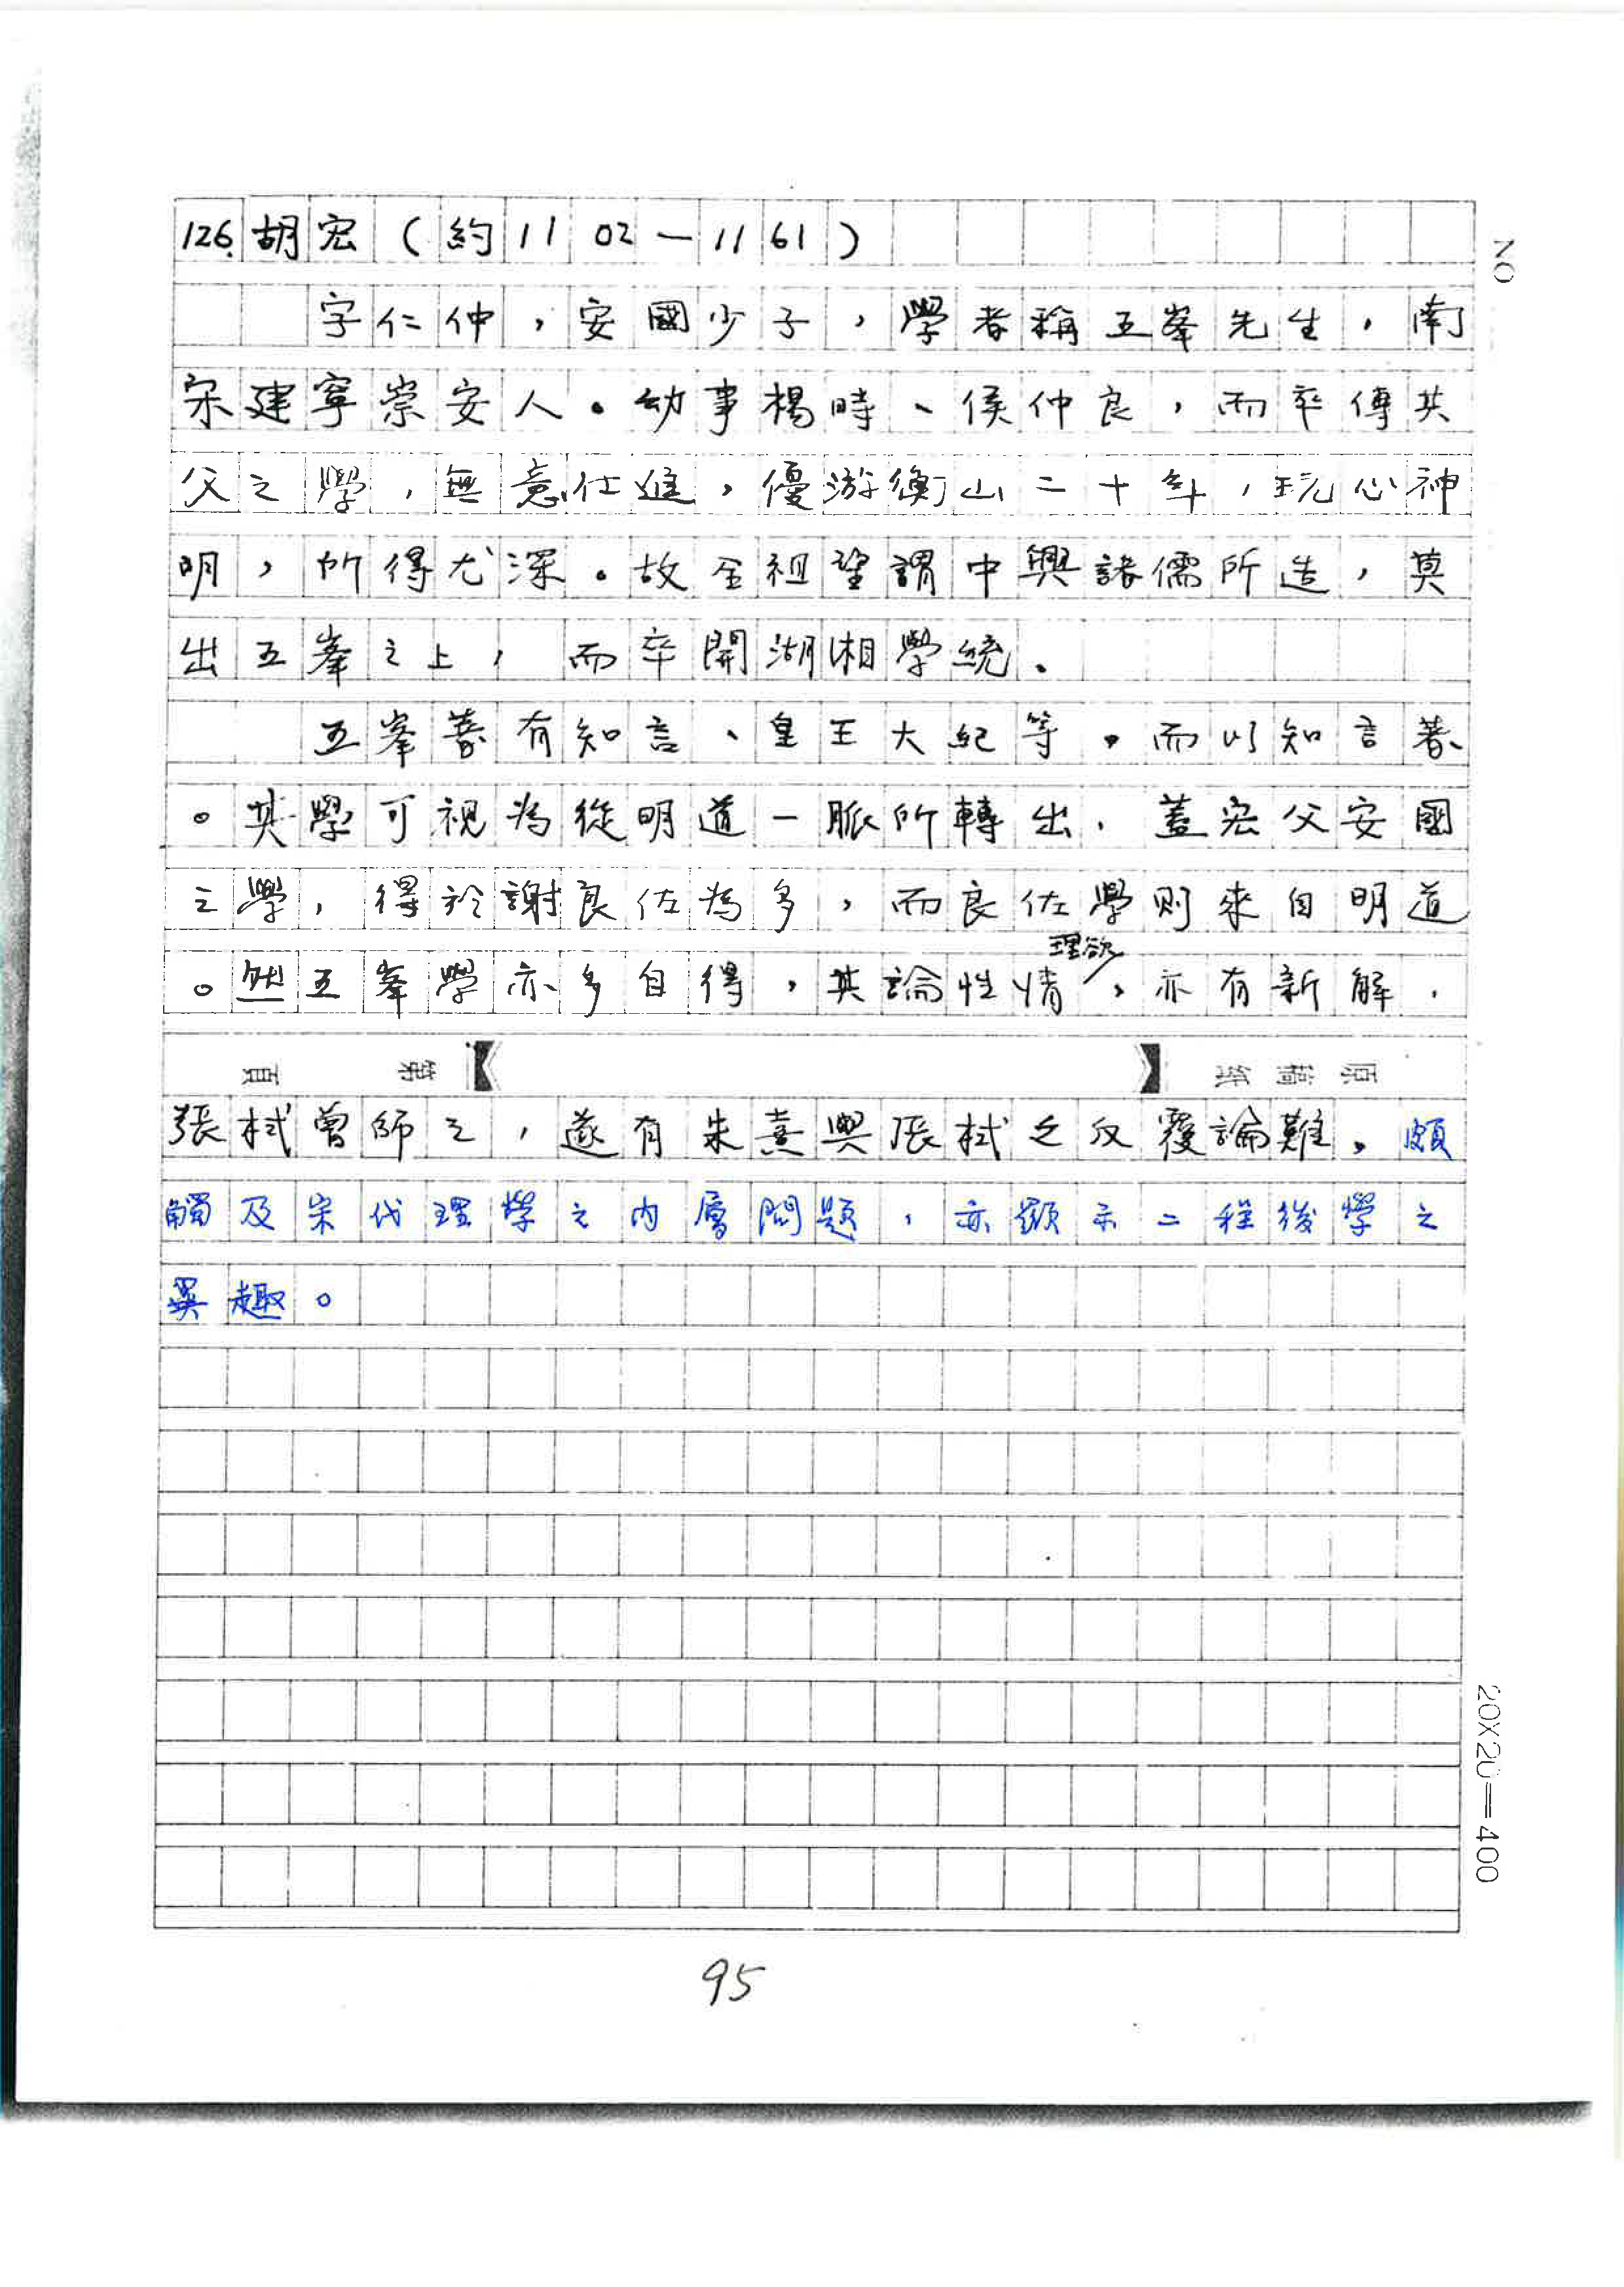 NO
126.胡宏(約1102-1161)
字仁仲，安國少子，學者稱五峯先生，南
宋建寧崇安人。幼事楊時、侯仲良，而卒傳其
父之學，無意仕進，優游衡山二十年，玩心神
明，所得尤深。故全祖望謂中興諸儒所造，莫
出五峯之上，而卒開湖湘學統。
五峯著有知言、皇王大紀等。而以知言著
。其學可視為從明道一脈所轉出，蓋宏父安國
之學，得於謝良佐為多，而良佐學則來自明道
理欲
。然五峯學亦多自得，其論性情，亦有新解，
原稿紙 第 頁
張栻曾師之，遂有朱熹與張栻之反覆論難。頗
觸及宋代理學之內層問題，亦顯示二程後學之
異趣。
20X20=400
95